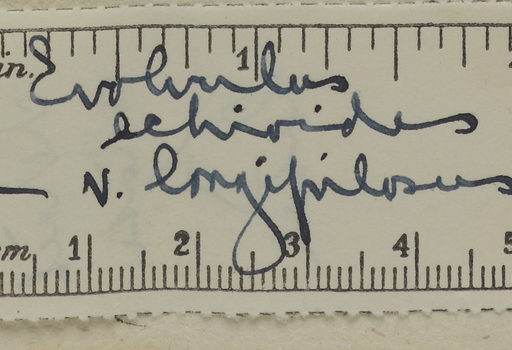 in. 1
Evolvulus
echioides
— v. longipilosus
cm 1 2 3 4 5